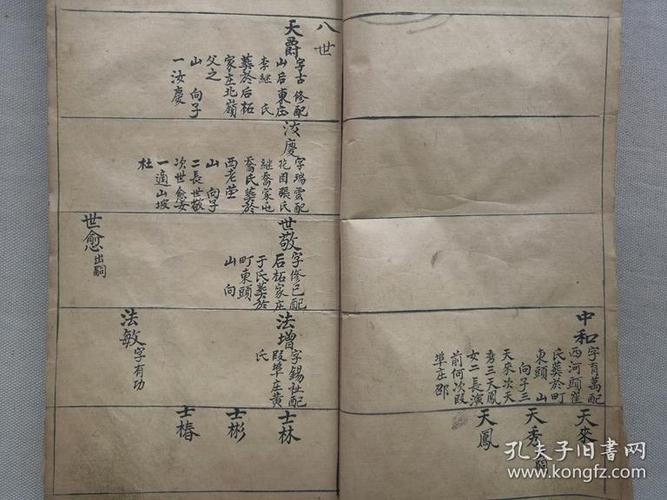 中和
字育萬配
西河頭崔
氏葬於町
東頭 山
向子三
天來次天
秀三天鳳
女二長演
前何次段
埠庄邵
天來
天秀
天鳳
八世
天爵
字古修配
山后東庄
李継 氏
葬於后柘
家庄北嶺
父之
山 向子
一汝慶
汝慶
字瑞雲配
花园張氏
継喬家屯
喬氏葬於
西老茔
山 向子
二長世敬
次世愈女
一適山坡
杜
世敬
字修已配
后柘家庄
于氏葬於
町東頭
山 向
世愈
出嗣
法增
字錫祉配
段埠庄黄
氏
法敏
字有功
士林
士彬
士椿
孔夫子旧书网
www.kongfz.com